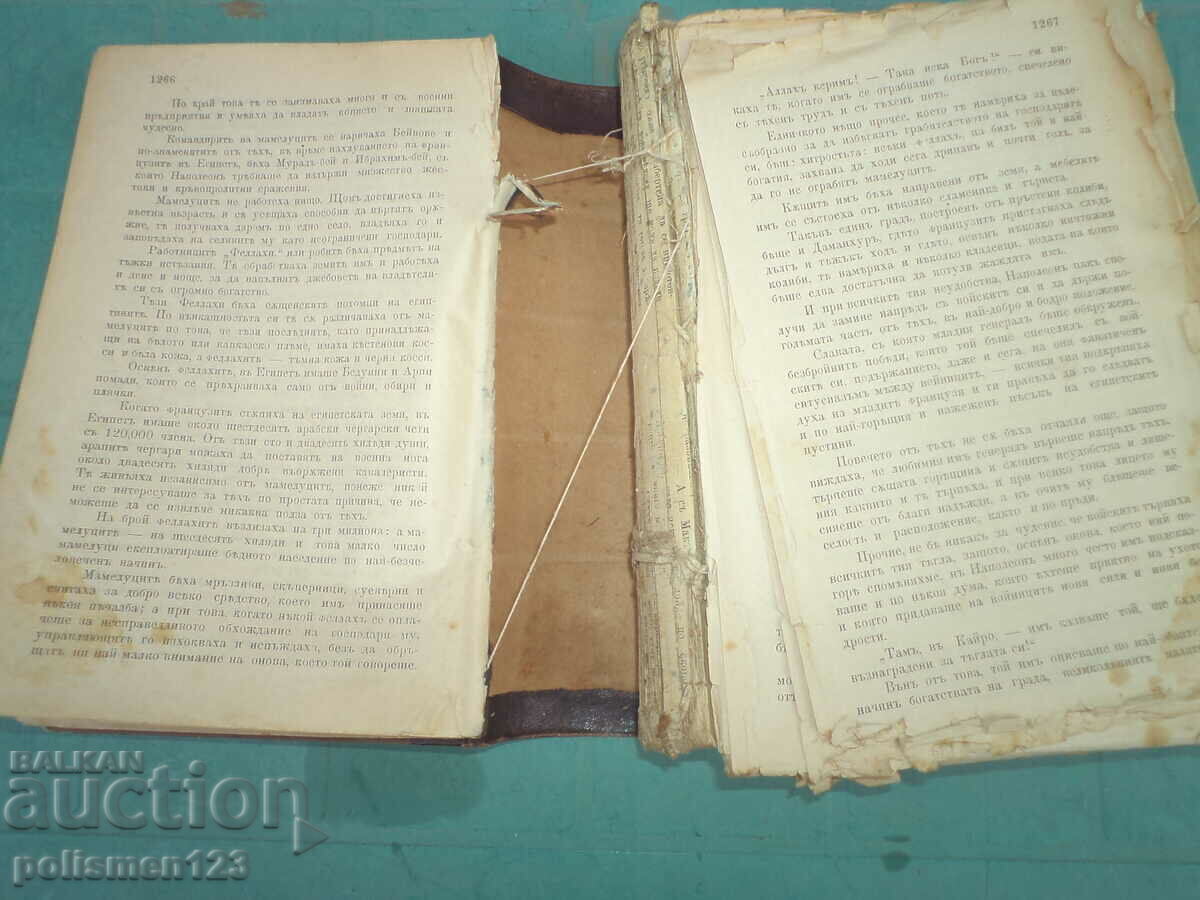 1266
По край това тѣ се занимаваха много и съ военни
предприятия и умѣяха да владатъ копието и лонцката
чудесно.
Командирить на мамелуцитѣ се наричаха Бейнове и
по-знаменитить отъ тѣхъ, въ врѣме нахлуванието на фран-
цузитѣ въ Египетъ, бѣха Мурадъ-бей и Ибрахимъ-бей, съ
които Наполеонъ трѣбваше да издържи множество жес-
токи и кръвопролитни сражения.
Мамелуцитѣ не работеха нищо. Щомъ достигнеха из-
вѣстна възрасть и сѫ усѣщаха способни да държатъ орѫ-
жие, тѣ получаваха даромъ по едно село, владѣяха го и
заповѣдаха на селянитѣ му като неограничени господари.
Работницитѣ „Феллахи“ или робитѣ бѣха прѣдметъ на
тѫжки истезания. Тѣ обработваха земитѣ имъ и работѣха
и дене и ноще, за да напълнятъ джебоветѣ на владѣтели-
тѣ си съ огромно богатство.
Тѣзи Феллахи бѣха сѫщенскитѣ потомци на егип-
тянитѣ. По външностьта си тѣ сѫ различаваха отъ ма-
мелуцитѣ по това, че тѣзи послѣднитѣ, като принадлѣжа-
щи на бѣлото или кавказско плѣме, имаха кѣстеняви кос-
си и бѣла кожа, а феллахитѣ — тъмна кожа и черни косси.
Освенъ феллахитѣ, въ Египетъ имаше Бедуини и Арни
помади, които се прѣхранваха само отъ войни, обири и
плячки.
Когато французитѣ стѫпиха на египетската земя, въ
Египетъ имаше около шестдесять арабски чергарски чети
съ 120,000 члена. Отъ тѣзи сто и двадесять хиляди души,
арапитѣ чергари можаха да поставятъ на военна нога
около двадесять хиляди добрѣ въорѫжени кавалеристи.
Тѣ живѣяха независимо отъ мамелуцитѣ, понеже никой
не се интересуваше за тѣхъ по простата причина, че не-
можеше да се извлѣче никаква полза отъ тѣхъ.
На брой феллахитѣ възлизаха на три милиона: а ма-
мелуцитѣ — на шесдесять хиляди и това малко число
мамелуци експлоатираше бѣдното население по най-безчо-
ловеченъ начинъ.
Мамелуцитѣ бѣха мръзливи, скѫперници, суеверни и
считаха за добро всѣко срѣдство, което имъ принасяше
нѣкоя пѣчалба; а при това, когато нѣкой феллахъ се опла-
чеше за несправедливото обхождание на господаря му,
управляющитѣ го нахокваха и испѫждахъ, безъ да обръ-
щатъ ни най малко внимание на онова, което той говореше.
1267
„Аллахъ керимъ! — Така иска Богъ!“ — си ви-
каха тѣ, когато имъ се ограбваше богатството, спечелено
съ тѣхенъ трудъ и съ тѣхенъ потъ.
Едничкото нѣщо прочее, което тѣ намѣриха за цѣле-
съобразно за да избѣгнатъ грабителството на господарите
си, бѣше: хитростьта: всѣки феллахъ, па билъ той и най-
богатия, захвана да ходи сега дрипавъ и почти голъ, за
да го не ограбятъ мамелуцитѣ.
Кѫщитѣ имъ бѣха направени отъ земя, а мебелитѣ
имъ се състоеха отъ нѣколко сламеника и гърнета.
Такъвъ единъ градъ, построенъ отъ пръстени колиби,
бѣше и Даманхуръ, гдѣто французитѣ пристигнаха слѣдъ
дългъ и тѫжъкъ ходъ и гдѣто, освѣнъ нѣколко ничтожни
колиби, тѣ намѣриха и нѣколко кладенци, водата на които
бѣше едва достатъчна да потули жаждята имъ.
И при всичкитѣ тия неудобства, Наполеонъ пакъ спо-
лучи да замине напрѣдъ съ войскитѣ си и да държи по-
голѣмата часть отъ тѣхъ, въ най-добро и бодро положение.
Славата, съ която младия генералъ бѣше обкрѫженъ,
безбройнитѣ победи, които той бѣше спечелилъ съ вой-
скитѣ си, подържанието, даже и сега, на оня фанатиченъ
ентусиазъмъ между войницитѣ, — всички тия подкрепяха
духа на младитѣ французи и ги правѣха да го слѣдватъ
и по най-горѣщия и нажеженъ пѣсъкъ на египетскитѣ
пустини.
Повечето отъ тѣхъ не сѫ бѣха отчаяли още, защото
виждаха, че любимия имъ генералъ вървеше напрѣдъ тѣхъ,
търпеше сѫщата горѣщина и сѫщитѣ неудобства и лише-
ния каквито и тѣ търпѣха, и при всяко това лицето му
сияеше отъ благи надѣжди, а въ очитѣ му блѣщеше ве-
селость и расположение, както и по прѣди.
Прочие, не бѣ никакъ за чудение, че войскитѣ търпяха
всичкитѣ тия тѣгла, защото, освѣнъ онова, което ний по-
горѣ споменахме, въ Наполеонъ много често имъ подсказ-
ваше и по нѣкоя дума, която ехтеше приятно на ухото
и която придаваше на войницитѣ нови сили и нова бо-
дрости.
„Тамъ, въ Кайро, — имъ казваше той, ще бѫде
възнаградени за тѣглата си!“
Вънъ отъ това, той имъ описваше по най-
начинъ богатствата на града, великолѣпнитѣ палати
BALKAN
auction
polismen123